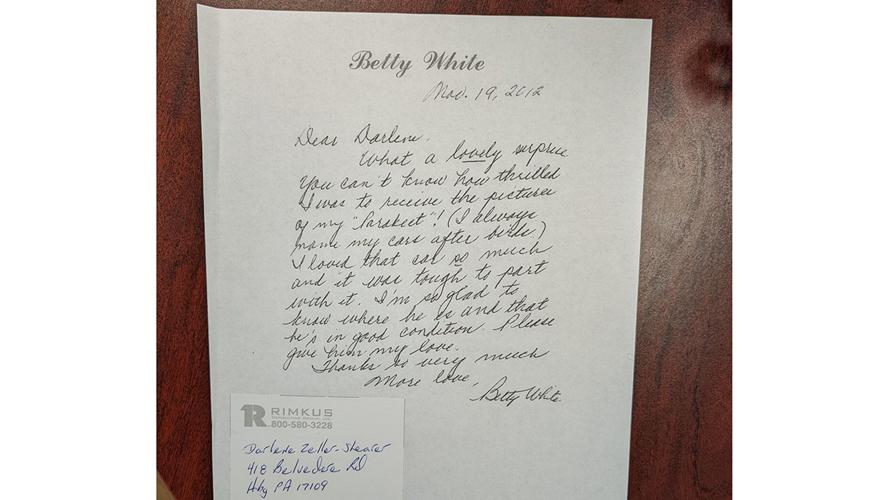 Betty White
Nov. 19, 2012
Dear Darlene.
What a lovely surprise
You can't know how thrilled
I was to receive the pictures
of my "Parakeet"! (I always
name my cars after birds)
I loved that car so much
and it was tough to part
with it. I'm so glad to
know where he is and that
he's in good condition. Please
give him my love.
Thanks so very much
More love,
Betty White
RIMKUS
800-580-3228
Darlene Zeller-Shearer
418 Belvedere Rd
Hbg PA 17109